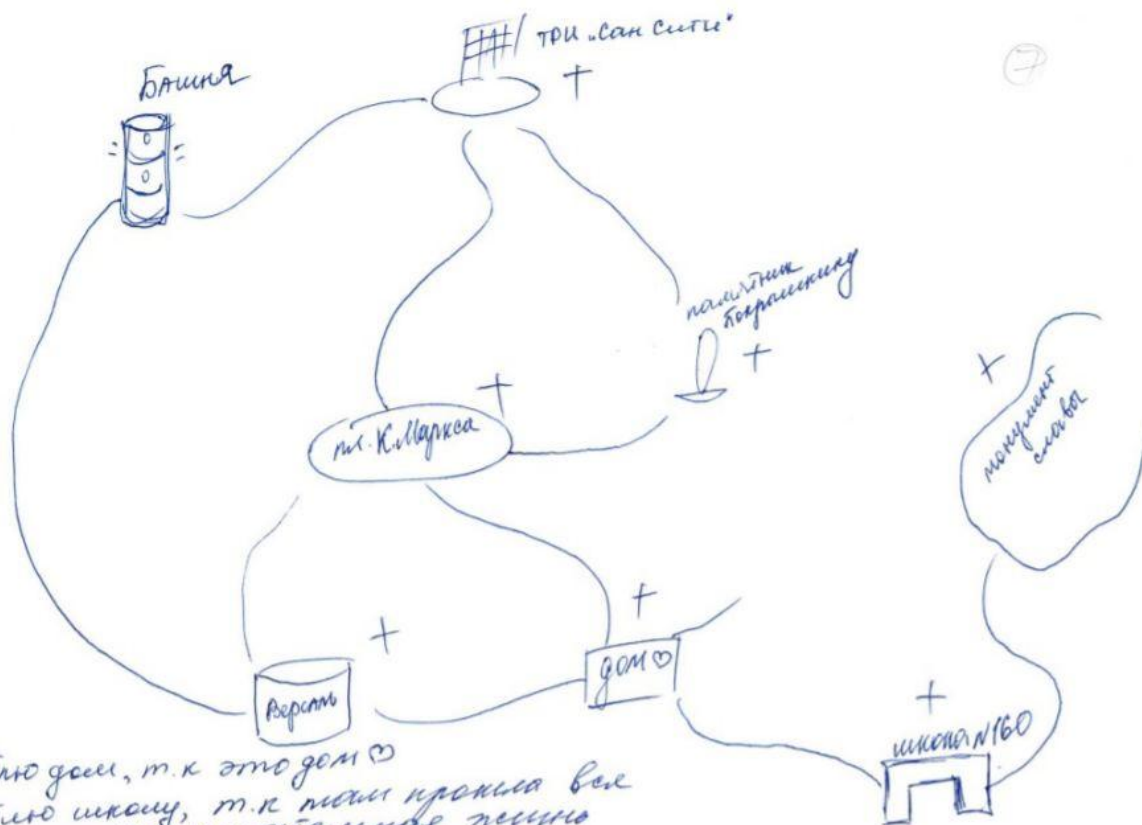 7
ТРЦ „Сан Сити"
Башня
+
памятник
Покрышкину
+
+
пл. К. Маркса
+
монумент
славы
+
+
Версаль
дом ♡
+
школа №160
лю дом, т.к это дом ♡
лю школу, т.к там прошла вся
жизнь